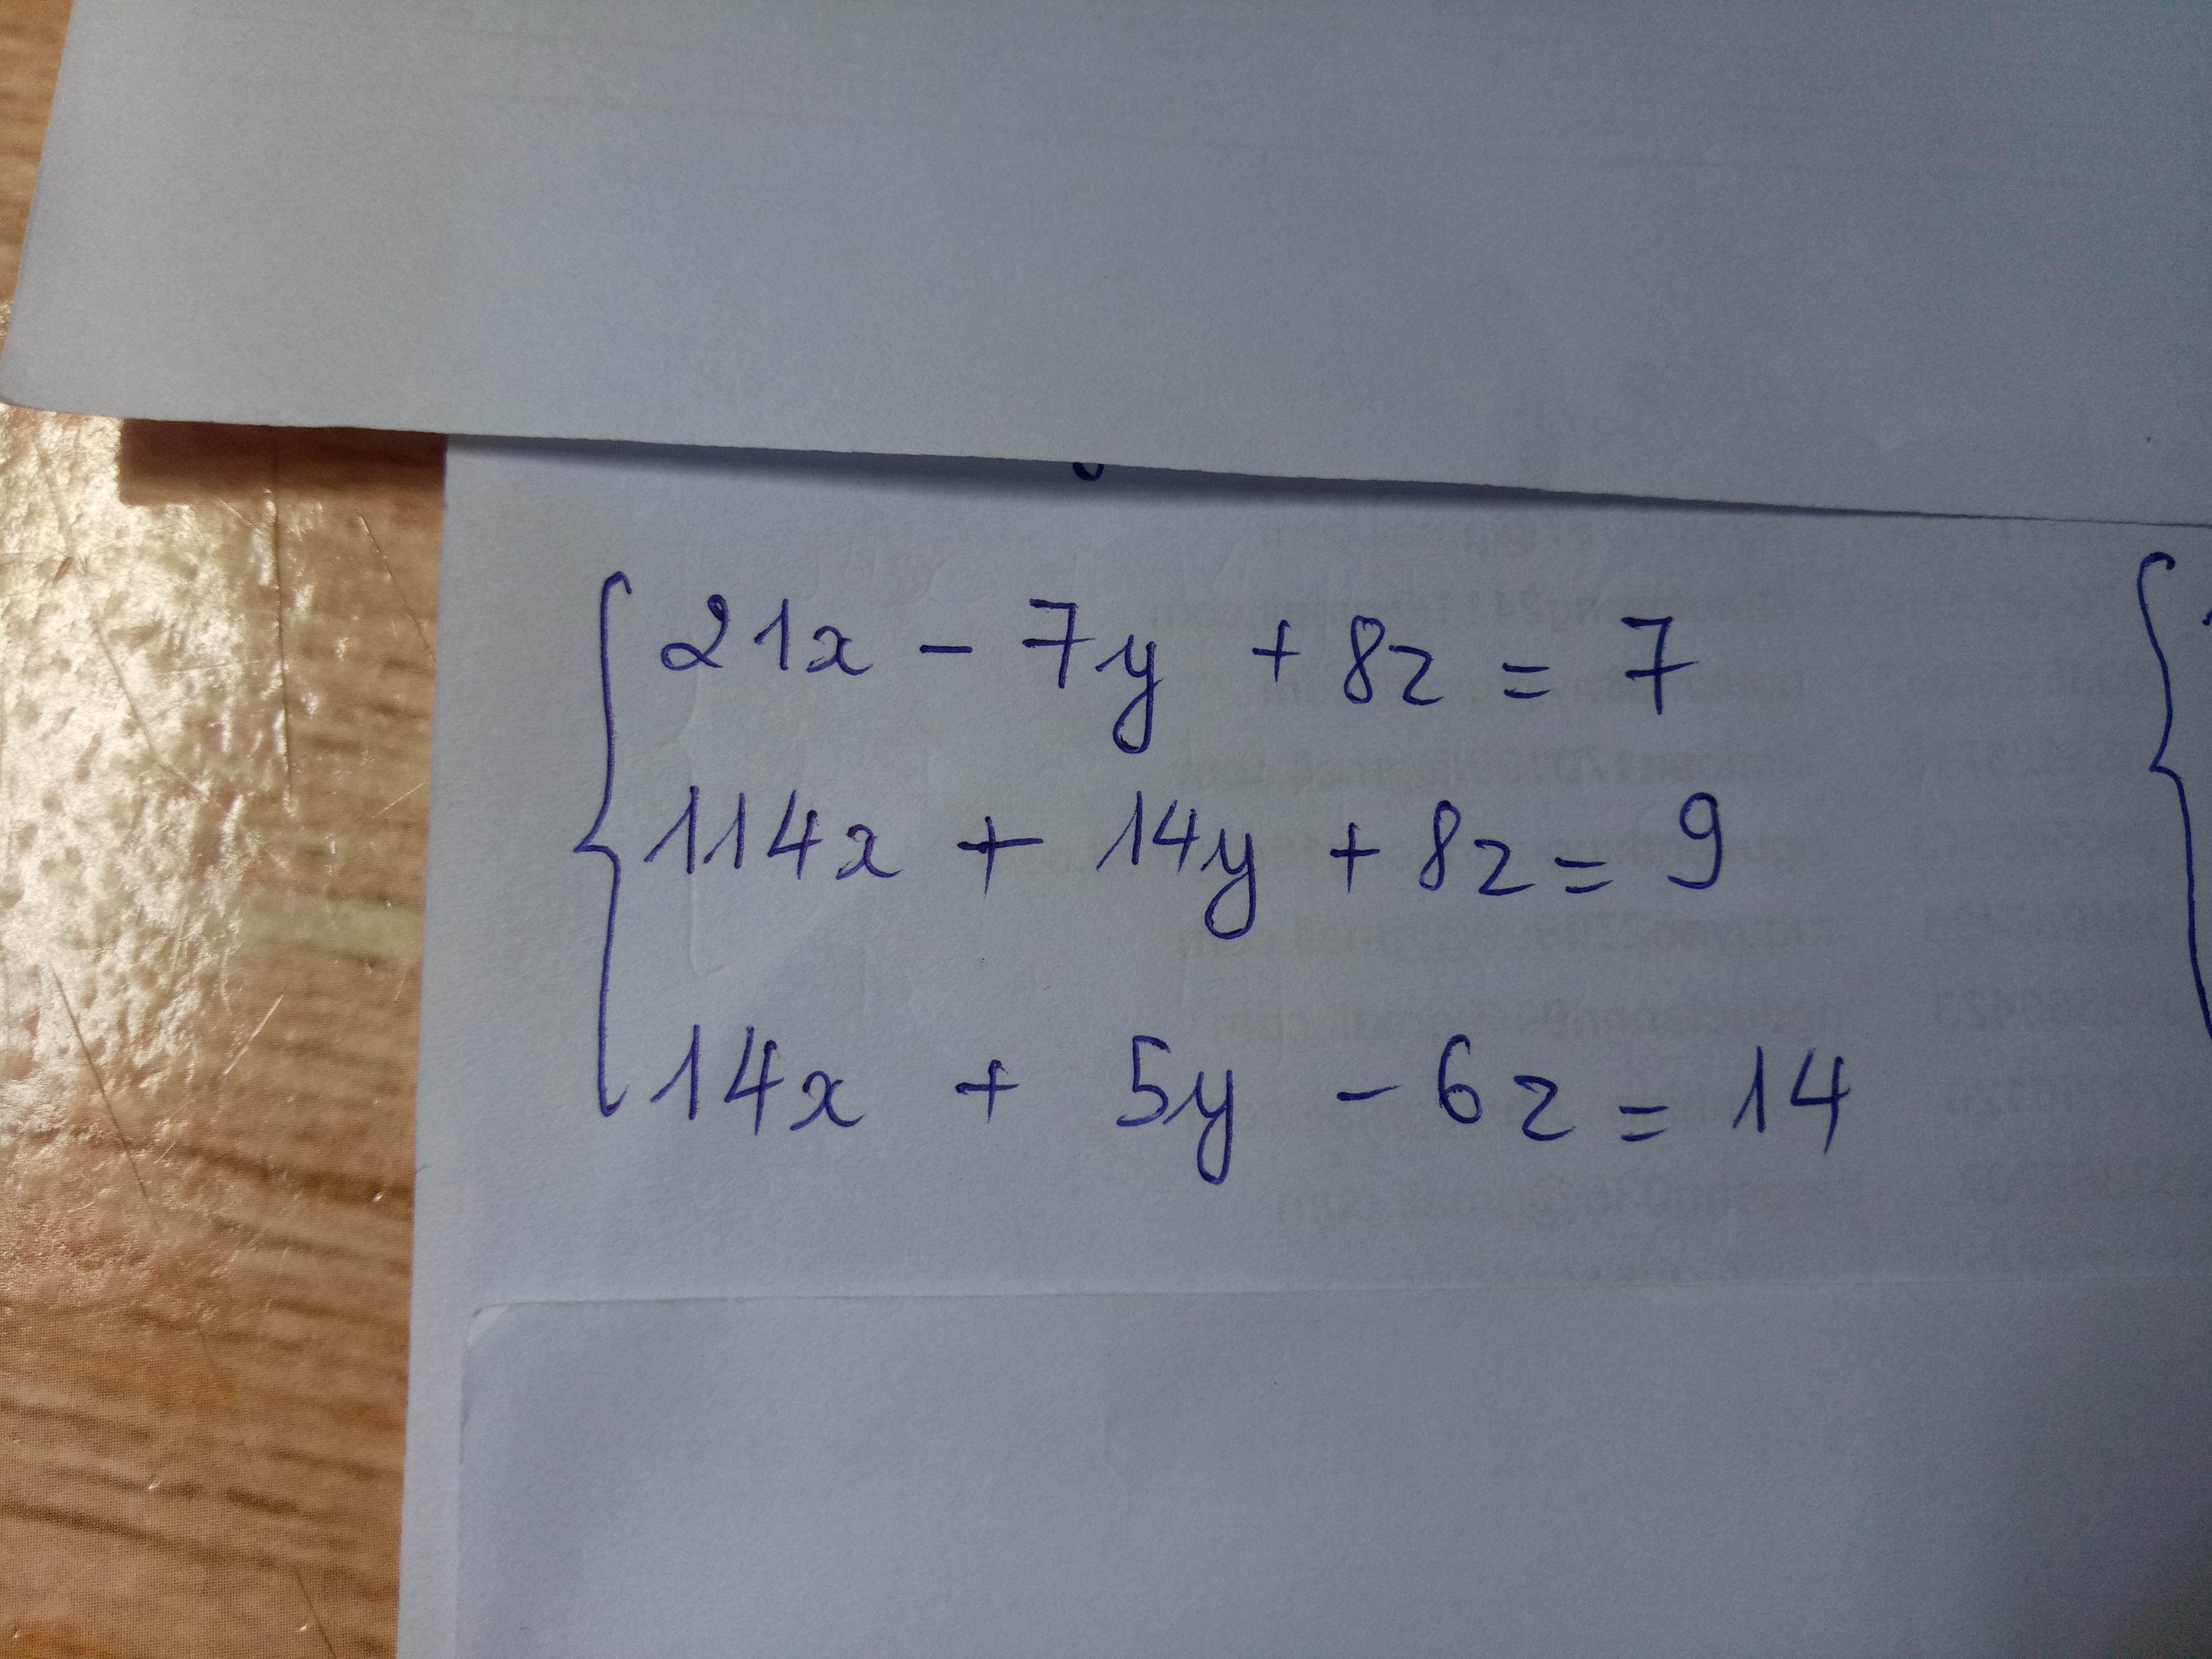 21x - 7y + 8z = 7
114x + 14y + 8z = 9
14x + 5y - 6z = 14